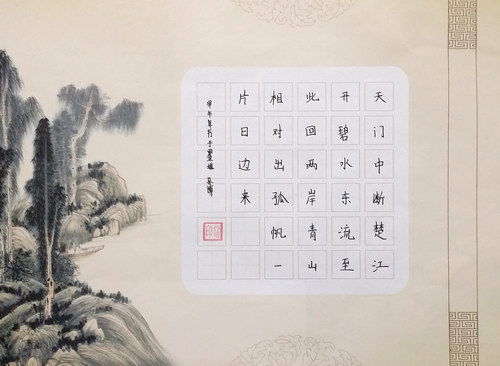 天门中断楚江
开碧水东流至
此回两岸青山
相对出孤帆一
片日边来
甲午年书于